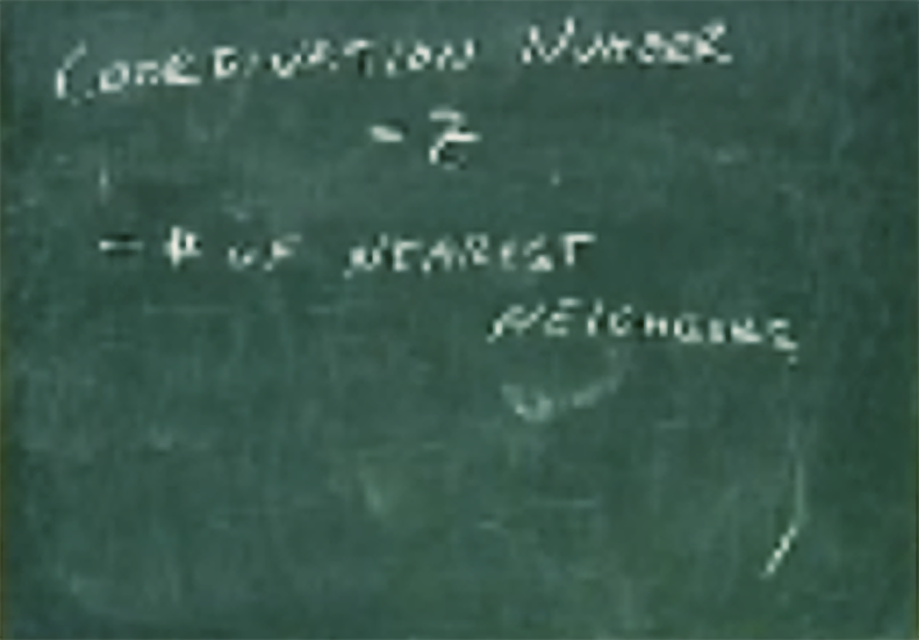 COORDINATION NUMBER
- Z
- # OF NEAREST
NEIGHBORS